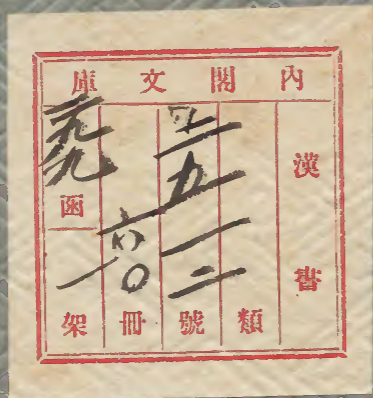 內閣文庫
漢書
類
九一二號
六〇冊
九九函
一架